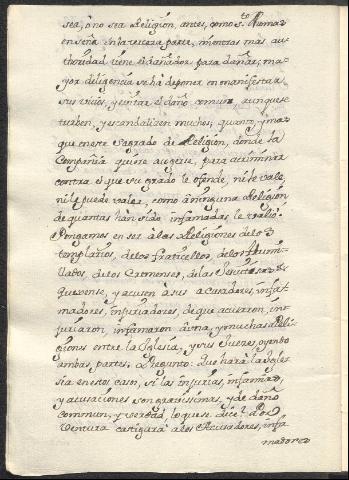 sea, ò no sea Religión, antes, como S.to Thomas
enseña en la tercera parte, mientras más au-
thoridad tiene el dañador para dañar; ma-
yor diligencia se hà de poner en manifestar
sus vicios, y evitar el daño común, aunque se
turben, y escandalizen muchos; quanto, y mas
que en este sagrado de Religión, donde la
Compañia quiere acogerse, para acriminar
contra el que su grado le ofende, ni le vale,
ni le puede valer, como à ninguna Religión
de quantas han sido infamadas le valió.
Pongamos en ser à las Religiones de los
templarios, de los fraticellos, de los Humi-
llados, de los Cremenses, de las Jesuitisas
quexense, y acusen à sus acusadores, infa-
madores, injuriadores, de que acusaron, in-
juriaron, infamaron à una, y muchas Reli-
giones entre la Iglesia, y sus Jueces, oyendo
ambas partes; Pregunto: Que harà la Igle-
sia en estos casos, si las injurias, infamias,
y acusaciones son gravissimas, y de daño
commun, y verdad, lo que se dice? Por
ventura castigarà à los Acusadores, infa-
madores